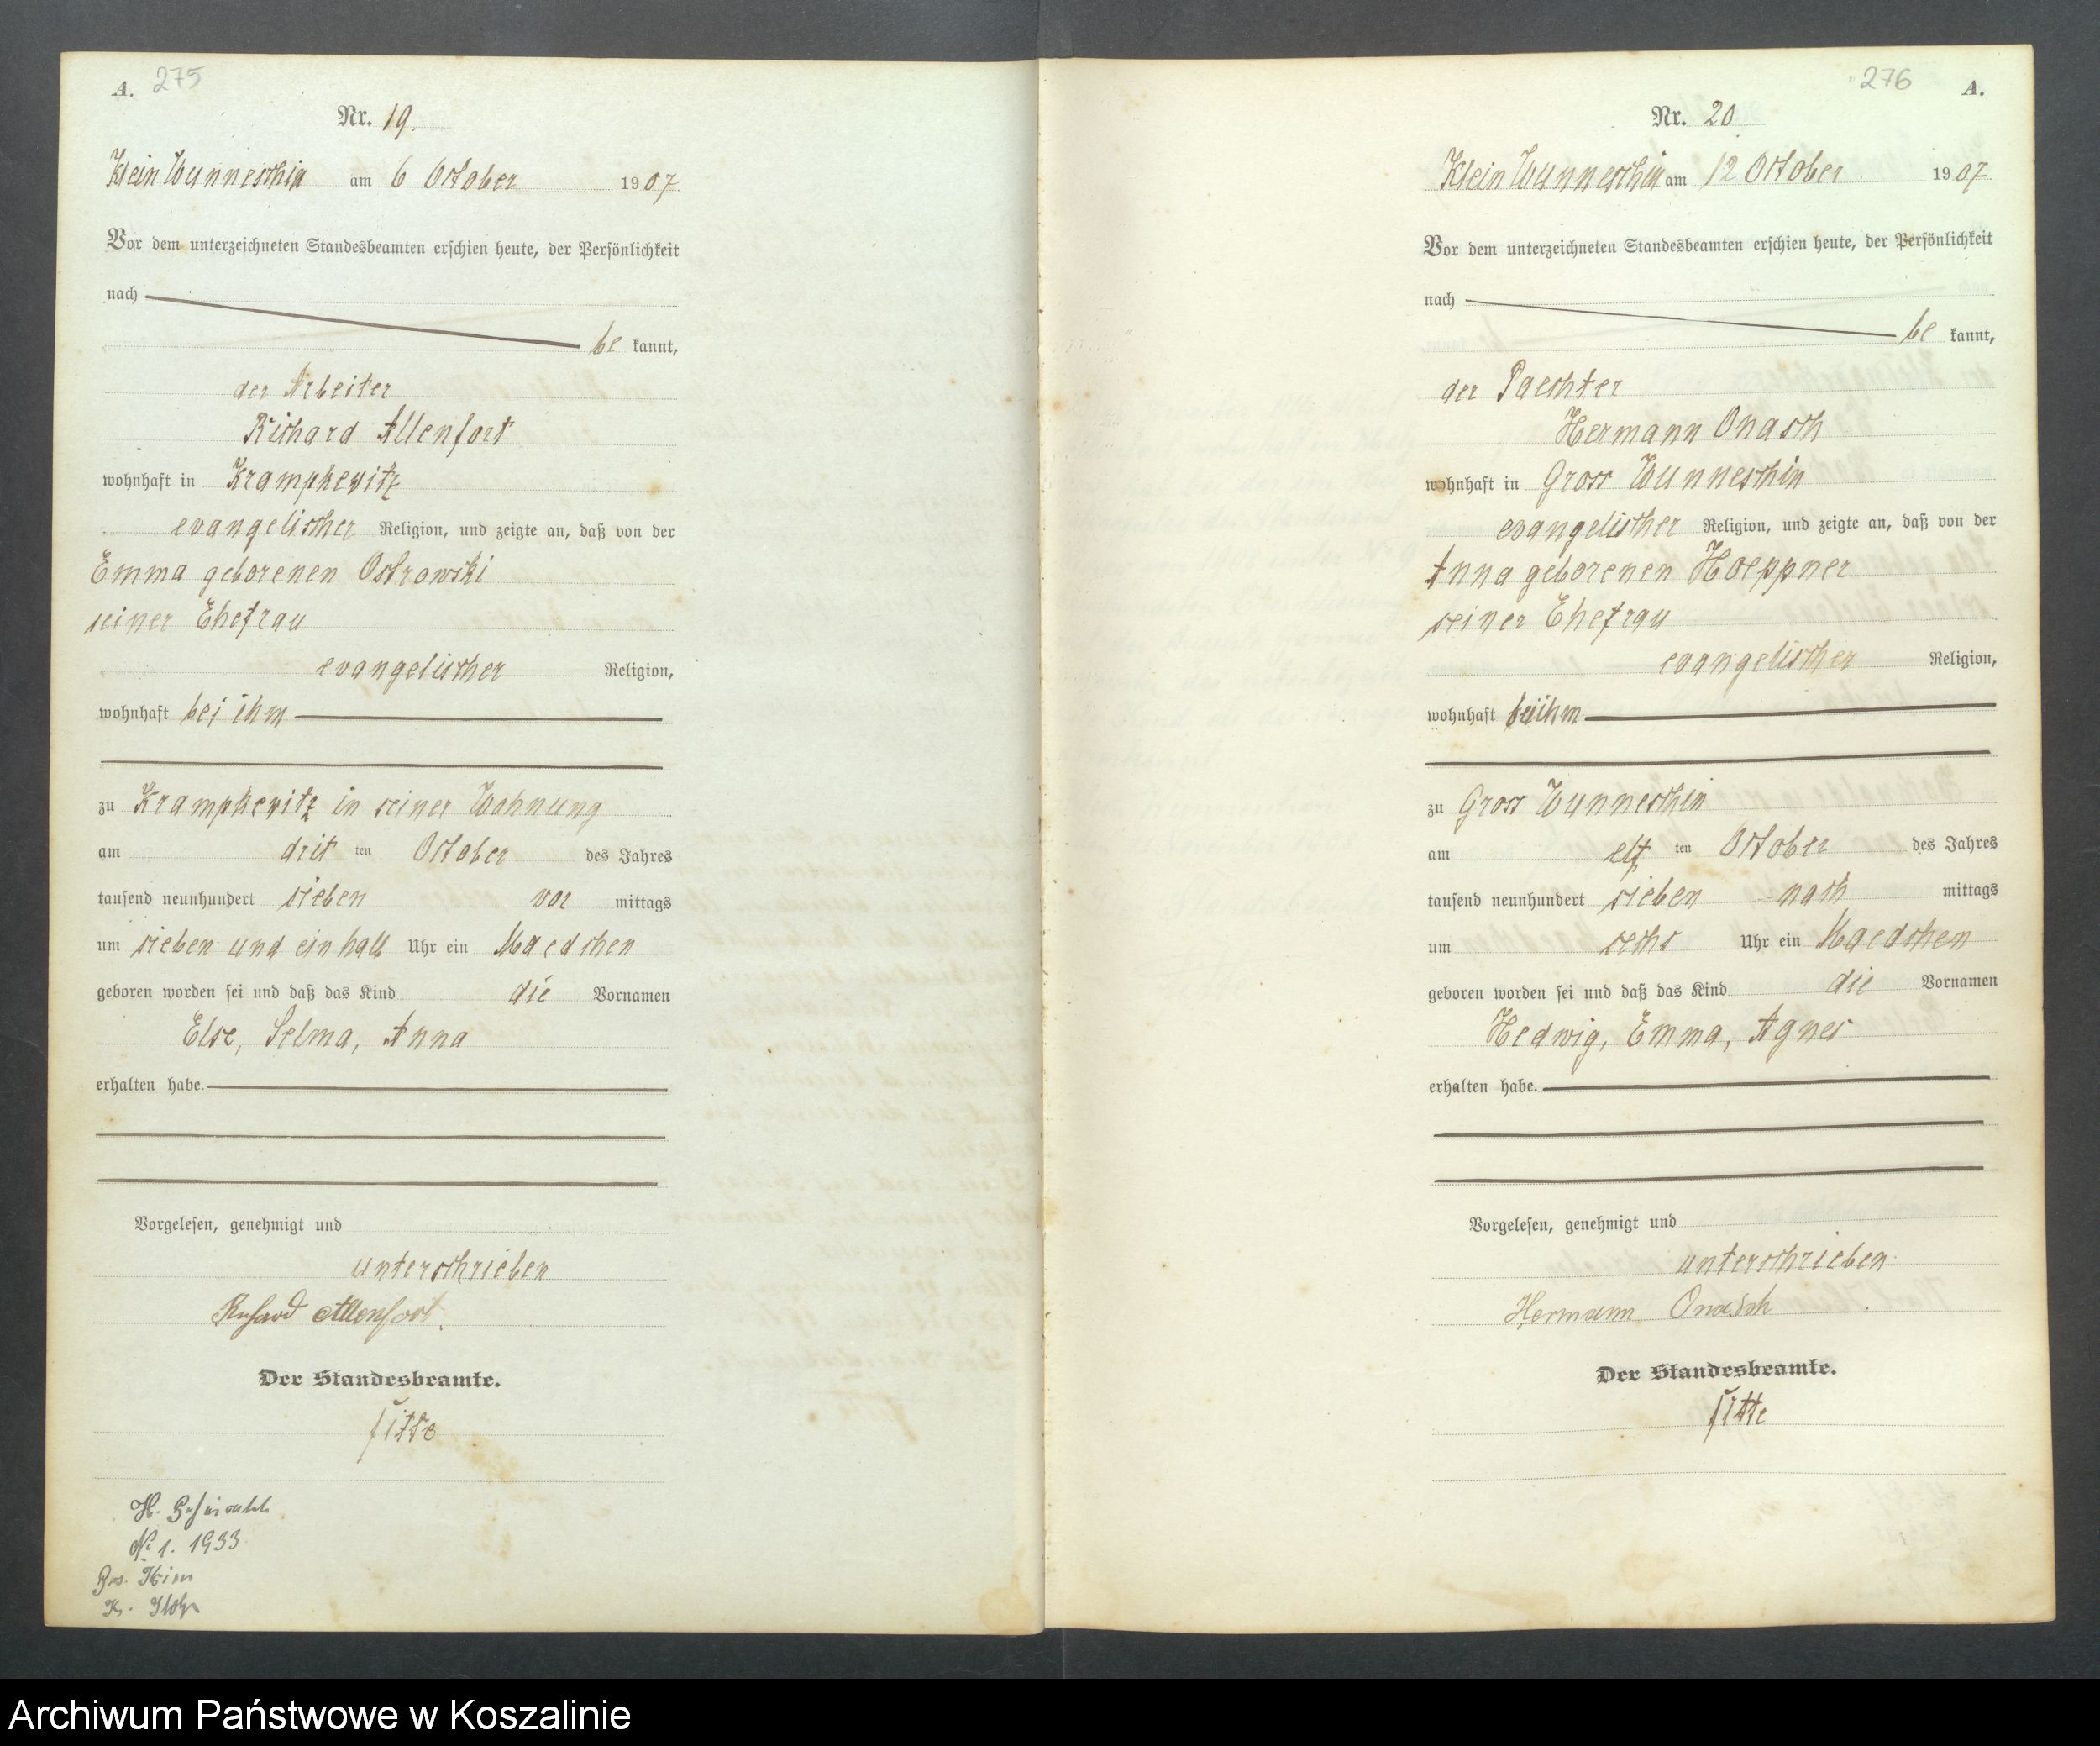 A. 275
Nr. 19.
Klein Wunneschin am 6 October 1907
Vor dem unterzeichneten Standesbeamten erschien heute, der Persönlichkeit
nach
be kannt,
der Arbeiter
Richard Allenfort
wohnhaft in Krampkewitz
evangelischer Religion, und zeigte an, daß von der
Emma geborenen Ostrowski
seiner Ehefrau
evangelischer Religion,
wohnhaft bei ihm
zu Krampkewitz in seiner Wohnung
am drit ten October des Jahres
tausend neunhundert sieben vor mittags
um sieben und ein halb Uhr ein Maedchen
geboren worden sei und daß das Kind die Vornamen
Else, Selma, Anna
erhalten habe.
Vorgelesen, genehmigt und
unterschrieben
Richard Allenfort.
Der Standesbeamte.
Fitte
H.
No 1. 1933
276 A.
Nr. 20
Klein Wunneschin am 12 October 1907
Vor dem unterzeichneten Standesbeamten erschien heute, der Persönlichkeit
nach
be kannt,
der Paechter
Hermann Onasch
wohnhaft in Gross Wunneschin
evangelischer Religion, und zeigte an, daß von der
Anna geborenen Hoeppner
seiner Ehefrau
evangelischer Religion,
wohnhaft bei ihm
zu Gross Wunneschin
am elf ten October des Jahres
tausend neunhundert sieben nach mittags
um sechs Uhr ein Maedchen
geboren worden sei und daß das Kind die Vornamen
Hedwig, Emma, Agnes
erhalten habe.
Vorgelesen, genehmigt und
unterschrieben
Hermann Onasch
Der Standesbeamte.
Fitte
Archiwum Państwowe w Koszalinie